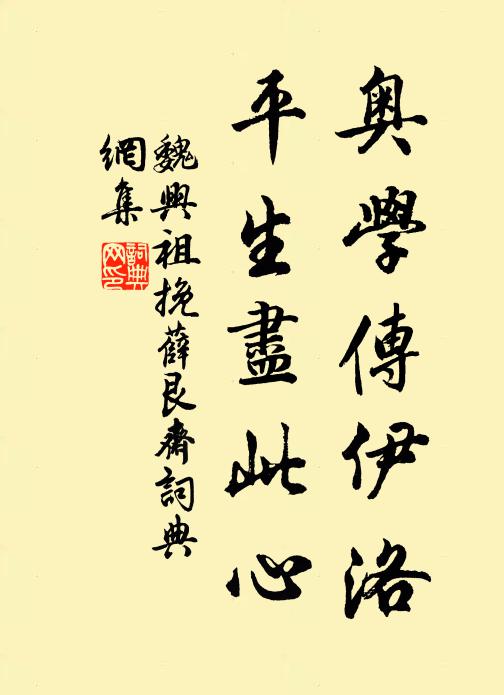 奧學傳伊洛
平生盡此心
魏興祖挽薛艮齋詞典
網集
詞典網印